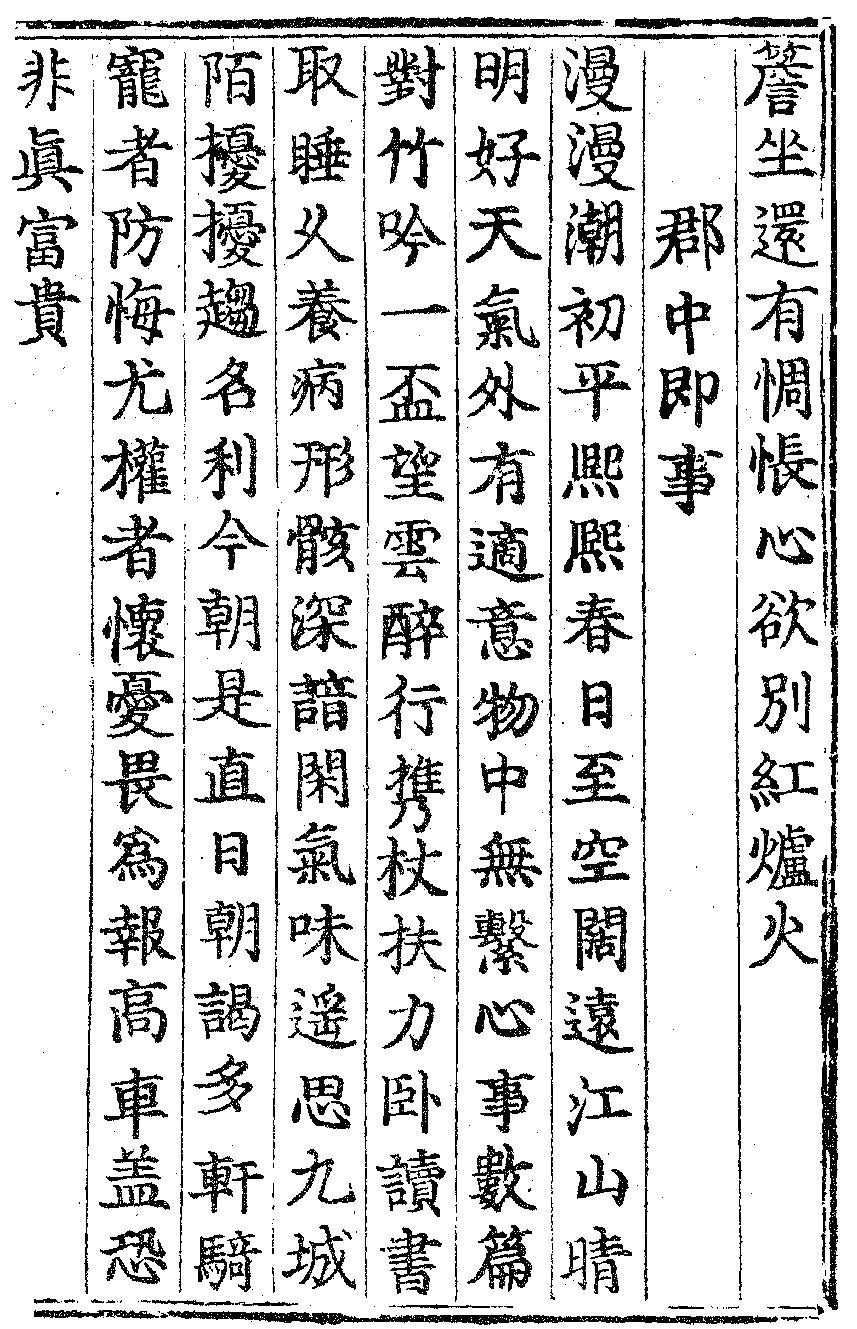 簷坐還有惆悵心欲別紅爐火
郡中即事
漫漫潮初平熈熈春日至空闊遠江山晴
明好天氣外有適意物中無繫心事數篇
對竹吟一盃望雲醉行攜杖扶力卧讀書
取睡乆養病形骸深諳閑氣味遥思九城
陌擾擾趨名利今朝是直日朝謁多軒騎
寵者防悔尤權者懷憂畏爲報髙車盖恐
非眞富貴